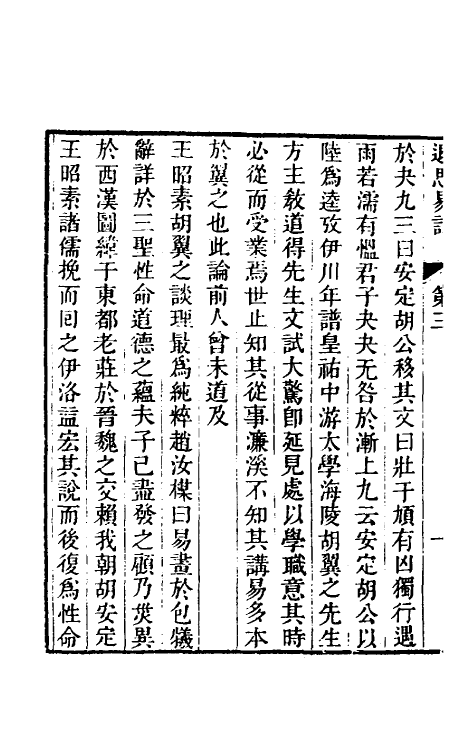 退思易話 第三 一
於夬九三曰安定胡公移其文曰壯于頄有凶獨行遇
雨若濡有慍君子夬夬无咎於漸上九云安定胡公以
陸爲逵攷伊川年譜皇祐中游太學海陵胡翼之先生
方主敎道得先生文試大驚卽延見處以學職意其時
必從而受業焉世止知其從事濂溪不知其講易多本
於翼之也此論前人曾未道及
王昭素胡翼之談理最爲純粹趙汝楳曰易畫於包犧
辭詳於三聖性命道德之蘊夫子已盡發之顧乃災異
於西漢圖緯于東都老莊於晉魏之交賴我朝胡安定
王昭素諸儒挽而回之伊洛益宏其說而後復爲性命